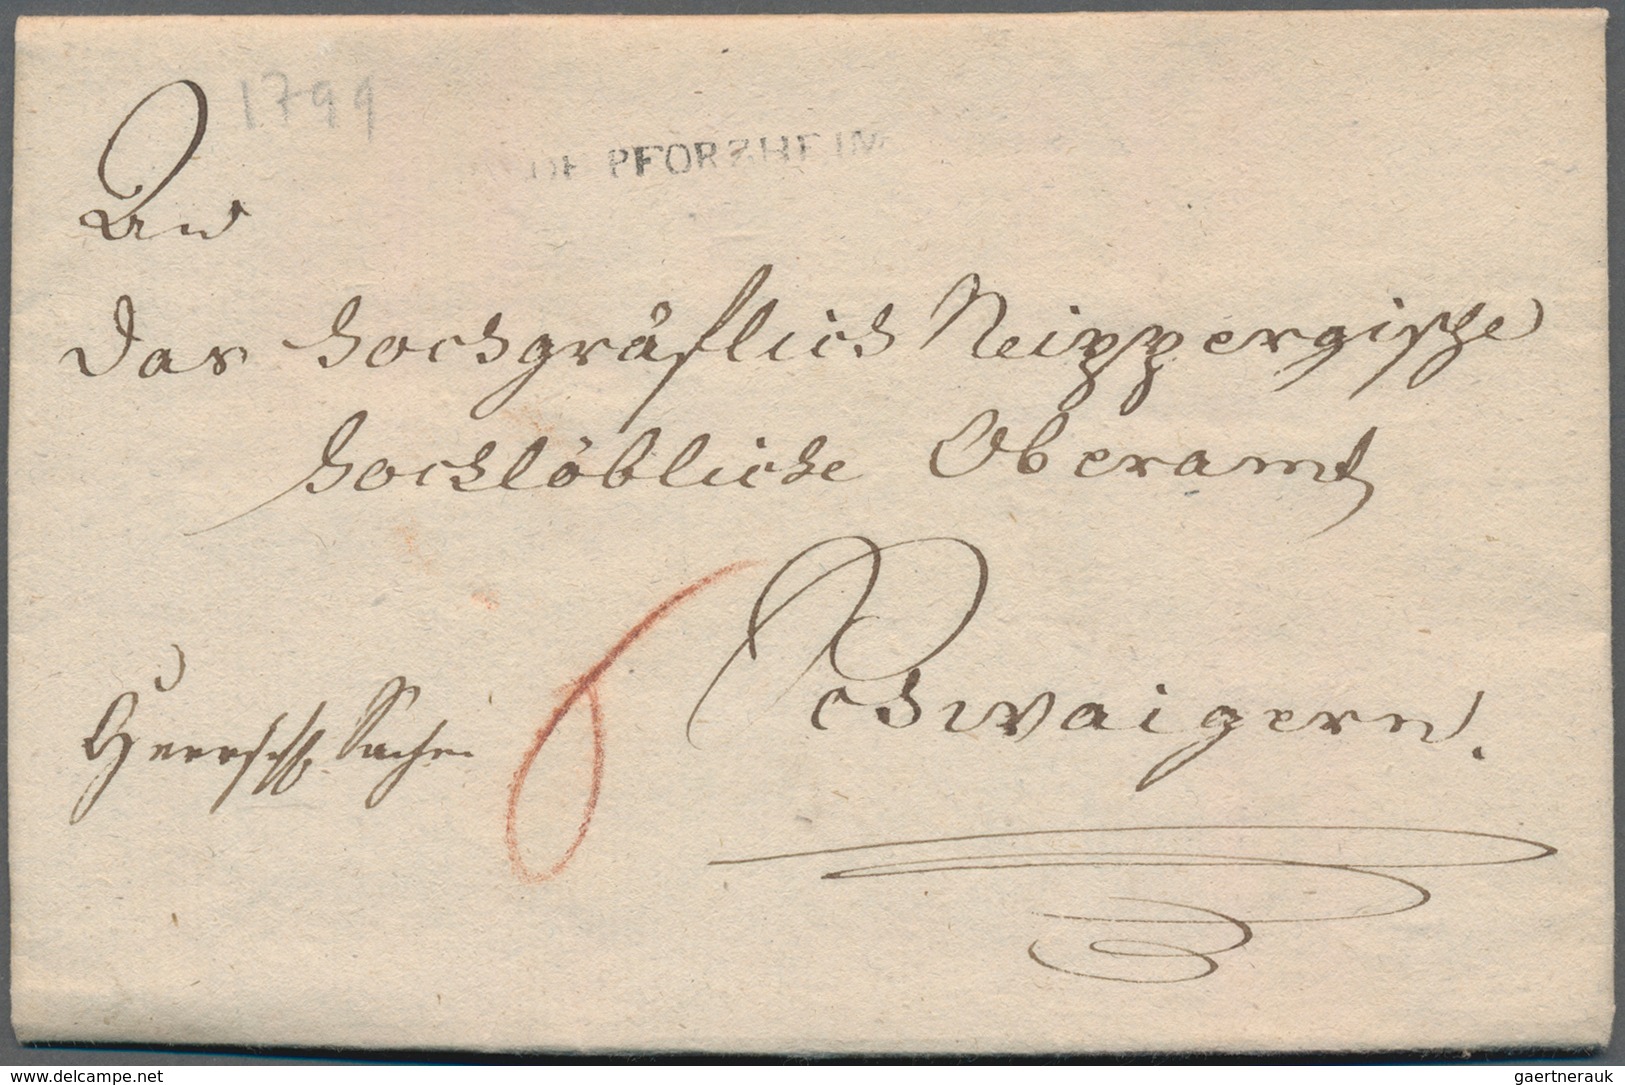 1799
DE PFORZHEIM
An
das hochgräflich Neippergische
hochlöbliche Oberamt
Schwaigern.
Herrschftl. Sachen
www.delcampe.net
gaertnerauk